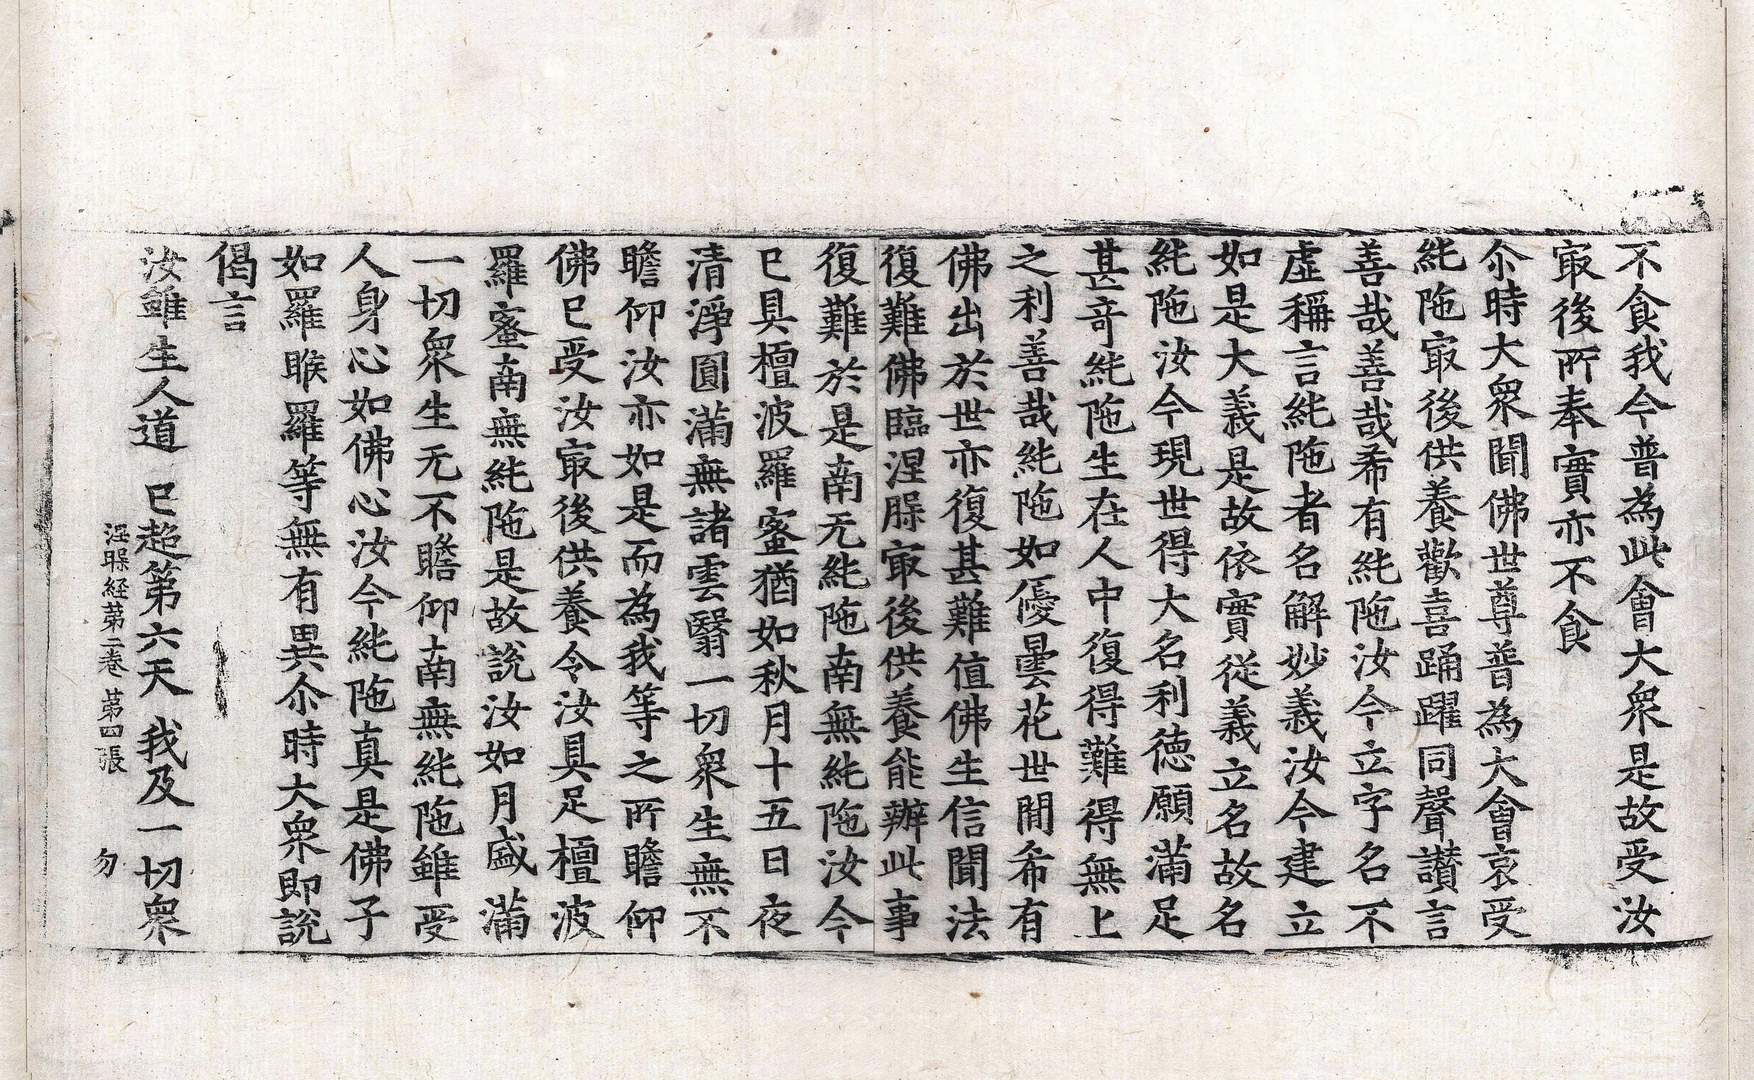 不食我今普為此會大衆是故受汝
㝡後所奉實亦不食
尒時大衆聞佛世尊普為大會哀受
純陁㝡後供養歡喜踊躍同聲讃言
善哉善哉希有純陁汝今立字名不
虛稱言純陁者名解妙義汝今建立
如是大義是故依實從義立名故名
純陁汝今現世得大名利德願滿足
甚竒純陁生在人中復得難得無上
之利善哉純陁如優曇花世閒希有
佛出於世亦復甚難值佛生信聞法
復難佛臨涅槃㝡後供養能辦此事
復難於是南无純陁南無純陁汝今
已具檀波羅蜜猶如秋月十五日夜
清淨圓滿無諸雲翳一切衆生無不
瞻仰汝亦如是而為我等之所瞻仰
佛已受汝㝡後供養令汝具足檀波
羅蜜南無純陁是故說汝如月盛滿
一切衆生无不瞻仰南無純陁雖受
人身心如佛心汝今純陁真是佛子
如羅睺羅等無有異尒時大衆即說
偈言
汝雖生人道 已超第六天 我及一切衆
涅槃経第二巻 第四張 勿